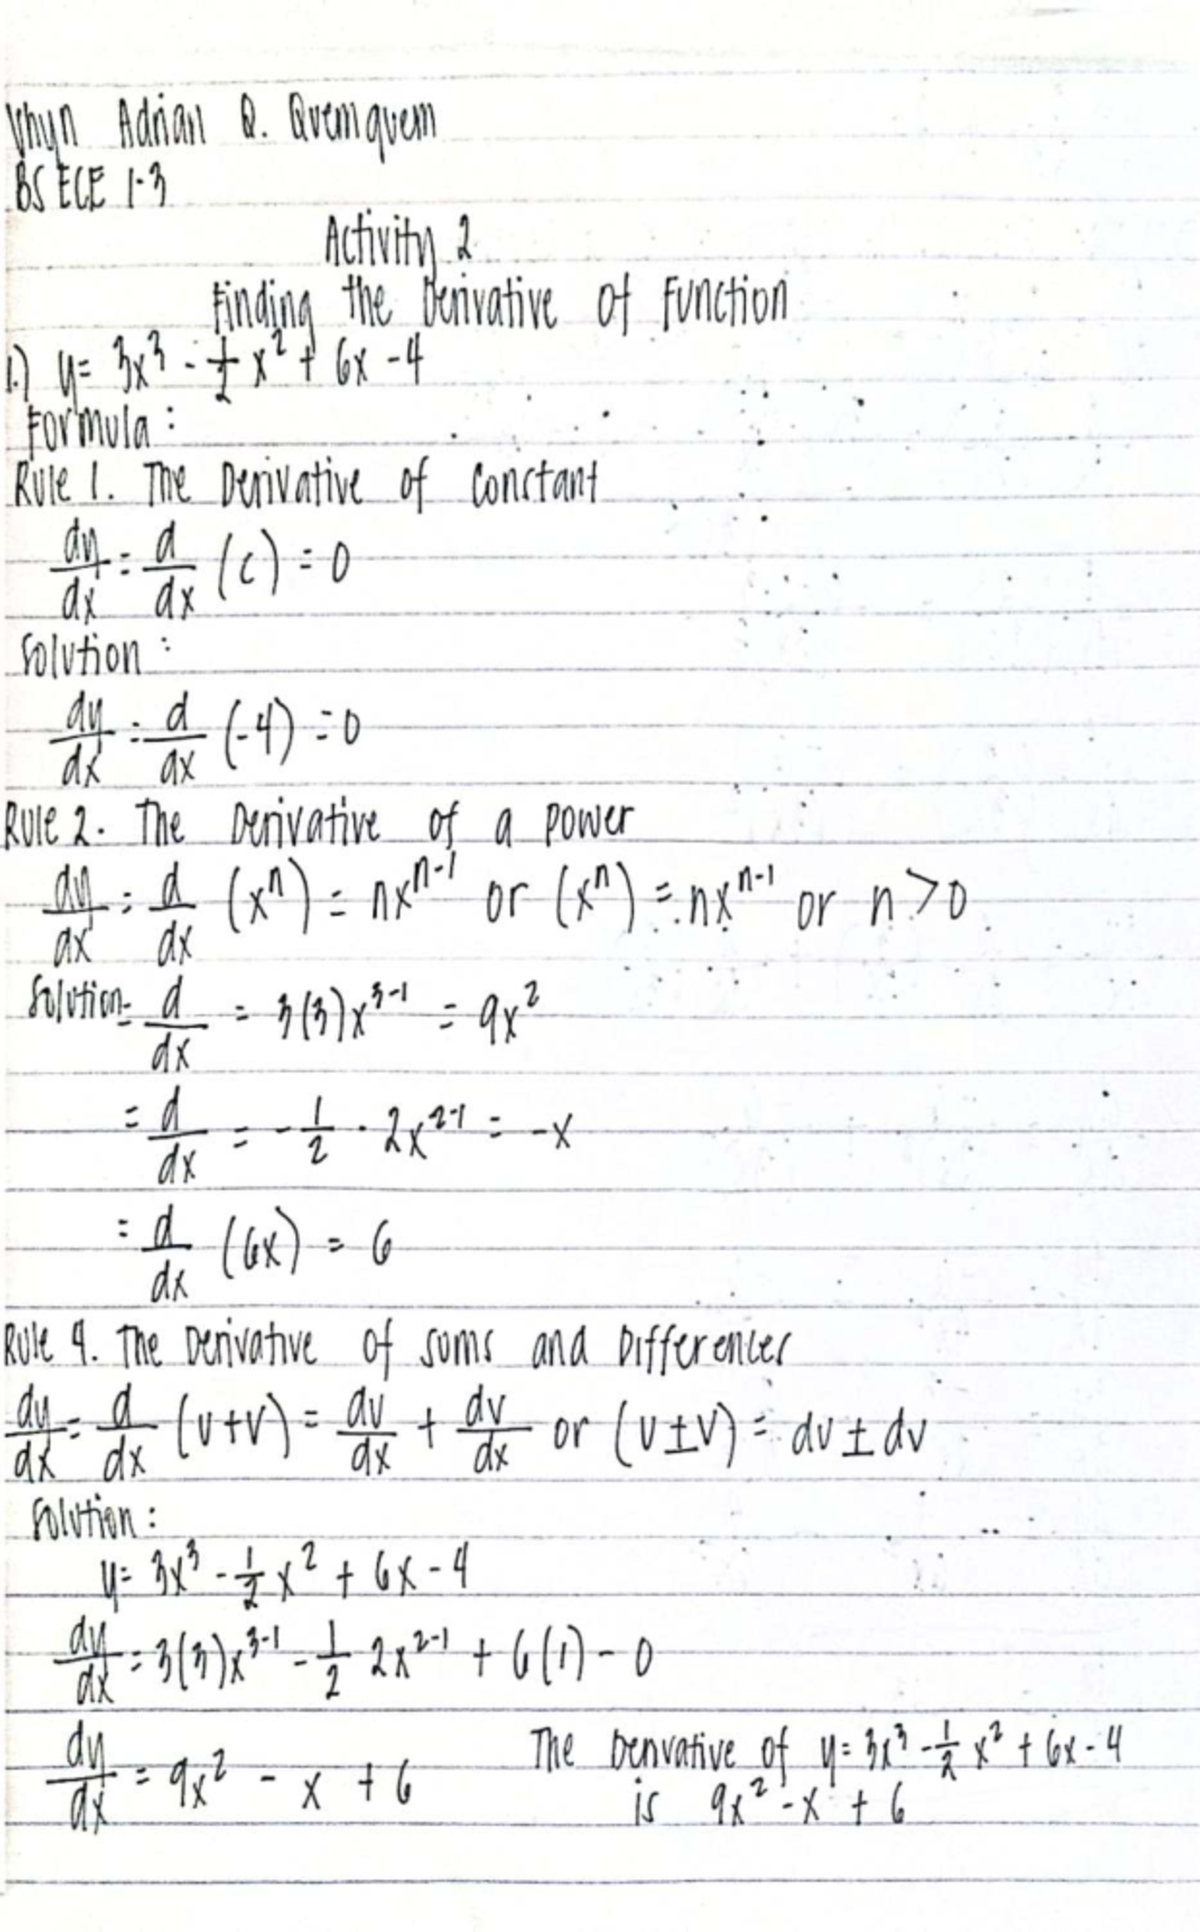 Vhyn Adrian Q. Quemquem
BS ECE 1-3
Activity 2
Finding the Derivative of Function
1.) y = 3x³ - 1/2 x² + 6x - 4
Formula :
Rule 1. The Derivative of Constant
dy/dx = d/dx (c) = 0
Solution :
dy/dx = d/dx (-4) = 0
Rule 2. The Derivative of a power
dy/dx = d/dx (xⁿ) = nxⁿ⁻¹ or (xⁿ) = nxⁿ⁻¹ or n > 0
Solution = d/dx = 3(3)x³⁻¹ = 9x²
= d/dx = - 1/2 · 2x²⁻¹ = -x
= d/dx (6x) = 6
Rule 4. The Derivative of sums and Differences
dy/dx = d/dx (u+v) = du/dx + dv/dx or (u±v) = du ± dv
Solution :
y = 3x³ - 1/2 x² + 6x - 4
dy/dx = 3(3)x³⁻¹ - 1/2 2x²⁻¹ + 6(1) - 0
dy/dx = 9x² - x + 6
The Derivative of y = 3x³ - 1/2 x² + 6x - 4
is 9x² - x + 6